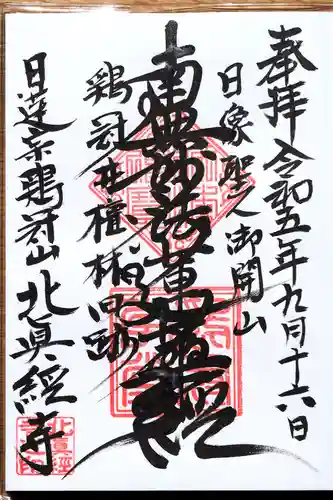 奉拝 令和五年九月十六日
日像聖人御開山
南無妙法蓮華經
鶏冠井檀林旧跡
日蓮宗鶏冠山 北眞經寺